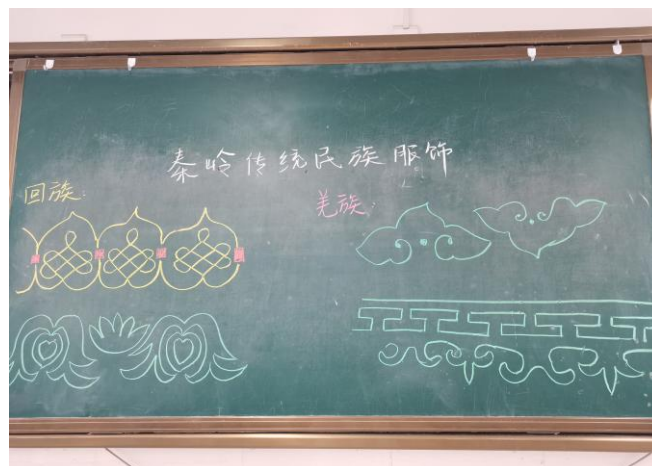 秦岭传统民族服饰
回族:
羌族: